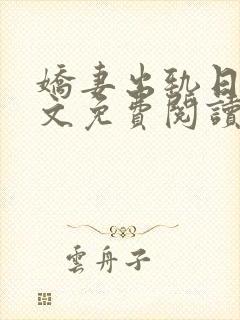 嬌妻出勁日
文免費閱讀
雲舟子